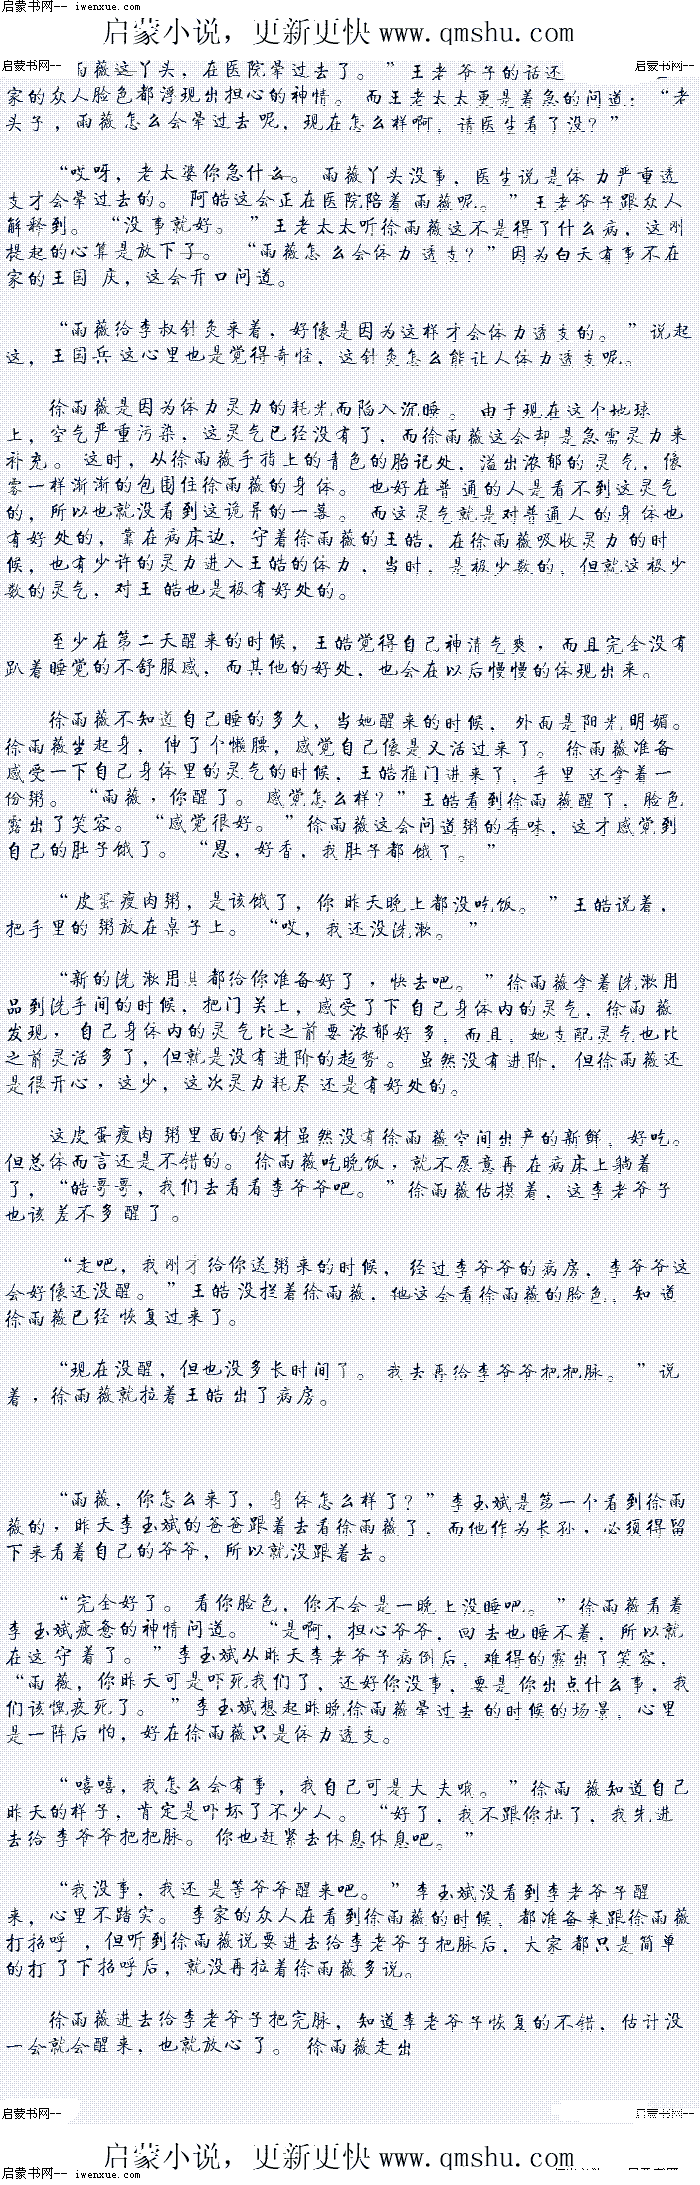 启蒙书网-- iwenxue.com
启蒙小说，更新更快 www.qmshu.com
启蒙书网-- 启蒙书网--
白薇这丫头，在医院晕过去了。”王老爷子的话还
家的众人脸色都浮现出担心的神情。而王老太太更是着急的问道：“老
头子，雨薇怎么会晕过去呢，现在怎么样啊，请医生看了没？”
“哎呀，老太婆你急什么。雨薇丫头没事，医生说是体力严重透
支才会晕过去的。阿皓这会正在医院陪着雨薇呢。”王老爷子跟众人
解释到。“没事就好。”王老太太听徐雨薇这不是得了什么病，这刚
提起的心算是放下了。“雨薇怎么会体力透支？”因为白天有事不在
家的王国庆，这会开口问道。
“雨薇给李叔针灸来着，好像是因为这样才会体力透支的。”说起
这，王国兵这心里也是觉得奇怪，这针灸怎么能让人体力透支呢。
徐雨薇是因为体力灵力的耗光而陷入沉睡。由于现在这个地球
上，空气严重污染，这灵气已经没有了，而徐雨薇这会却是急需灵力来
补充。这时，从徐雨薇手指上的青色的胎记处，溢出浓郁的灵气，像
雾一样渐渐的包围住徐雨薇的身体。也好在普通的人是看不到这灵气
的，所以也就没看到这诡异的一幕。而这灵气就是对普通人的身体也
有好处的，靠在病床边，守着徐雨薇的王皓，在徐雨薇吸收灵力的时
候，也有少许的灵力进入王皓的体力，当时，是极少数的，但就这极少
数的灵气，对王皓也是极有好处的。
至少在第二天醒来的时候，王皓觉得自己神清气爽，而且完全没有
趴着睡觉的不舒服感，而其他的好处，也会在以后慢慢的体现出来。
徐雨薇不知道自己睡的多久，当她醒来的时候，外面是阳光明媚。
徐雨薇坐起身，伸了个懒腰，感觉自己像是又活过来了。徐雨薇准备
感受一下自己身体里的灵气的时候，王皓推门进来了，手里还拿着一
份粥。“雨薇，你醒了。感觉怎么样？”王皓看到徐雨薇醒了，脸色
露出了笑容。“感觉很好。”徐雨薇这会问道粥的香味，这才感觉到
自己的肚子饿了。“恩，好香，我肚子都饿了。”
“皮蛋瘦肉粥，是该饿了，你昨天晚上都没吃饭。”王皓说着，
把手里的粥放在桌子上。“哎，我还没洗漱。”
“新的洗漱用具都给你准备好了，快去吧。”徐雨薇拿着洗漱用
品到洗手间的时候，把门关上，感受了下自己身体内的灵气，徐雨薇
发现，自己身体内的灵气比之前要浓郁好多，而且，她支配灵气也比
之前灵活多了，但就是没有进阶的趋势。虽然没有进阶，但徐雨薇还
是很开心，这少，这次灵力耗尽还是有好处的。
这皮蛋瘦肉粥里面的食材虽然没有徐雨薇空间出产的新鲜，好吃。
但总体而言还是不错的。徐雨薇吃晚饭，就不愿意再在病床上躺着
了，“皓哥哥，我们去看看李爷爷吧。”徐雨薇估摸着，这李老爷子
也该差不多醒了。
“走吧，我刚才给你送粥来的时候，经过李爷爷的病房，李爷爷这
会好像还没醒。”王皓没拦着徐雨薇，他这会看徐雨薇的脸色，知道
徐雨薇已经恢复过来了。
“现在没醒，但也没多长时间了。我去再给李爷爷把把脉。”说
着，徐雨薇就拉着王皓出了病房。
“雨薇，你怎么来了，身体怎么样了？”李玉斌是第一个看到徐雨
薇的，昨天李玉斌的爸爸跟着去看徐雨薇了，而他作为长孙，必须得留
下来看着自己的爷爷，所以就没跟着去。
“完全好了。看你脸色，你不会是一晚上没睡吧。”徐雨薇看着
李玉斌疲惫的神情问道。“是啊，担心爷爷，回去也睡不着，所以就
在这守着了。”李玉斌从昨天李老爷子病倒后，难得的露出了笑容，
“雨薇，你昨天可是吓死我们了，还好你没事，要是你出点什么事，我
们该愧疚死了。”李玉斌想起昨晚徐雨薇晕过去的时候的场景，心里
是一阵后怕，好在徐雨薇只是体力透支。
“嘻嘻，我怎么会有事，我自己可是大夫哦。”徐雨薇知道自己
昨天的样子，肯定是吓坏了不少人。“好了，我不跟你扯了，我先进
去给李爷爷把把脉。你也赶紧去休息休息吧。”
“我没事，我还是等爷爷醒来吧。”李玉斌没看到李老爷子醒
来，心里不踏实。李家的众人在看到徐雨薇的时候，都准备来跟徐雨薇
打招呼，但听到徐雨薇说要进去给李老爷子把脉后，大家都只是简单
的打了下招呼后，就没再拉着徐雨薇多说。
徐雨薇进去给李老爷子把完脉，知道李老爷子恢复的不错，估计没
一会就会醒来，也就放心了。徐雨薇走出
启蒙书网-- 启蒙书网--
启蒙小说，更新更快 www.qmshu.com
启蒙书网-- iwenxue.com